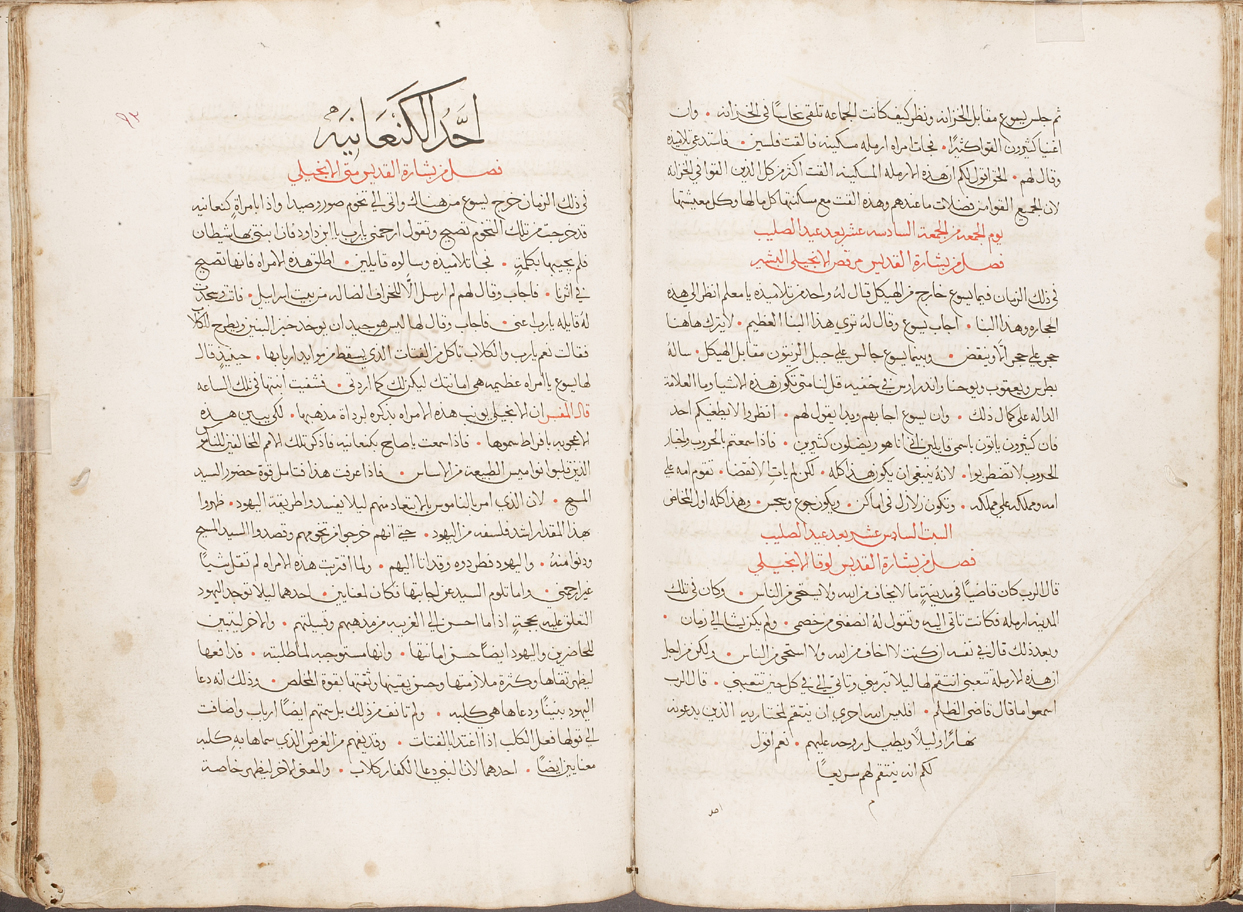 ثم جلس يسوع مقابل الخزانه ونظر كيف كانت الجماعه تلقي نحاسًا في الخزانه • وان
اغنيا كثيرون القوا كثيرًا • فجات امراه ارمله مسكينه فالقت فلسين • فاستدعى تلاميذه
وقال لهم • الحق اقول لكم ان هذه الارمله المسكينه القت اكثر من كل الذين القوا في الخزانه
لان الجميع القوا من فضلات ما عندهم وهذه القت مع مسكنتها كل مالها وكل معيشتها
يوم الجمعه من الجمعة السادسه عشر بعد عيد الصليب
فصل من بشارة القديس مرقص الانجيلي البشير
في ذلك الزمان فيما يسوع خارج من الهيكل قال له واحد من تلاميذه يا معلم انظر الى هذه
الحجاره وهذا البنا • اجاب يسوع وقال له ترى هذا البنا العظيم • لا يترك هاهنا
حجر على حجر الا وينقض • وبينما يسوع جالس على جبل الزيتون مقابل الهيكل • ساله
بطرس ويعقوب ويوحنا واندراوس في خفيه قل لنا متى تكون هذه الاشيا وما العلامة
الداله على كمال ذلك • وان يسوع اجابهم وبدا يقول لهم • انظروا لا يطغيكم احد
فان كثيرون ياتون باسمي قايلين اني انا هو ويضلون كثيرين • فاذا سمعتم بالحروب واخبار
الحروب لا تضطربوا • لانه ينبغي ان يكون هذا كله • لكن لم يات الانقضا • تقوم امه على
امه ومملكه على مملكه • وتكون زلازل في اماكن • ويكون جوع وسجس • وهذا كله اول المخاض
السبت السادس عشر بعد عيد الصليب
فصل من بشارة القديس لوقا الانجيلي
قال الرب كان قاضيًا في مدينةٍ ما لا يخاف من الله ولا يستحي من الناس • وكان في تلك
المدينه ارمله فكانت تاتي اليه وتقول له انصفني من خصمي • ولم يكن يشا الى زمان •
وبعد ذلك قال في نفسه ان كنت لا اخاف من الله ولا استحي من الناس • ولكن من اجل
ان هذه الارمله تتعبني انتقم لها ليلا ترمني وتاتي الي في كل حين تتعبني • قال الرب
اسمعوا ما قال قاضي الظلم • افليس الله احرى ان ينتقم لمختاريه الذين يدعونه
نهارًا وليلًا ويطيل روحه عليهم • نعم اقول
لكم انه ينتقم لهم سريعًا
احد
احَّدُ الكَنعَانيه
فصل من بشارة القديس متى الانجيلي
في ذلك الزمان خرج يسوع من هناك واتى الى تخوم صور وصيدا واذا بامراةٍ كنعانيه
قد خرجت من تلك التخوم تصيح وتقول ارحمني يا رب يا ابن داود فان ابنتي بها شيطان
فلم يجيبها بكلمةٍ • فجا تلاميذه وسالوه قايلين • اطلق هذه الامراه فانها تصيح
في اثرنا • فاجاب وقال لهم لم ارسل الا للخراف الضاله من بيت اسرايل • فاتت وسجدت
له قايله يا رب اعني • فاجاب وقال لها ليس هو جيد ان يوخذ خبز البنين ويطرح للكلاب
فقالت نعم يا رب والكلاب تاكل من الفتات الذي يسقط من موايد اربابها • حينيذٍ قال
لها يسوع يا امراه عظيمه هي امانتك ليكن لك كما اردتي • فشفيت ابنتها في تلك الساعه
قال المفسر ان الانجيلي يونب هذه الامراه بذكره لرداة مذهبها • لكي يبين هذه
الاعجوبه بافراط سموها • فاذا سمعت يا صاح بكنعانيه فاذكر تلك الامم المخالفين الناموس
الذين قلبوا نواميس الطبيعه من الاساس • فاذا عرفت هذا فتامل قوة حضور السيد
المسيح • لان الذي امر الناموس بالابتعاد منهم ليلا يفسدوا طريقة اليهود • ظهروا
بهذا المقدار اشد فلسفه من اليهود • حتى انهم خرجوا من تخومهم وقصدوا السيد المسيح
ودنوا منه • واليهود فطردوه وقد اتا اليهم • ولما اقتربت هذه الامراه لم تقل شيًا
غير ارحمني • واما تلوم السيد عن اجابتها فكان لمعنايين • احدهما ليلا توجد اليهود
التعلق عليه بحجةٍ اذا ما احسن الى الغريبه من مذهبهم وقبيلتهم • والاخر ليبين
للحاضرين واليهود ايضًا حسن امانتها • وانها مستوجبه لما طلبته • قد دافعها
ليظهر تقاها وكثرة ملازمتها وحسن يقينها وثقتها بقوة المخلص • وذلك انه دعا
اليهود بنينًا ودعاها هي كلبه • ولم تانف من ذلك بل سمتهم ايضًا ارباب واضافت
الى قولها فعل الكلب اذا اغتدا الفتات • وقد يفهم من الغرض الذي سماها به كلبه
معنايين ايضًا • احدهما لان النبي دعا الكفار كلاب • والمعنى الاخر ليظهر خاصة